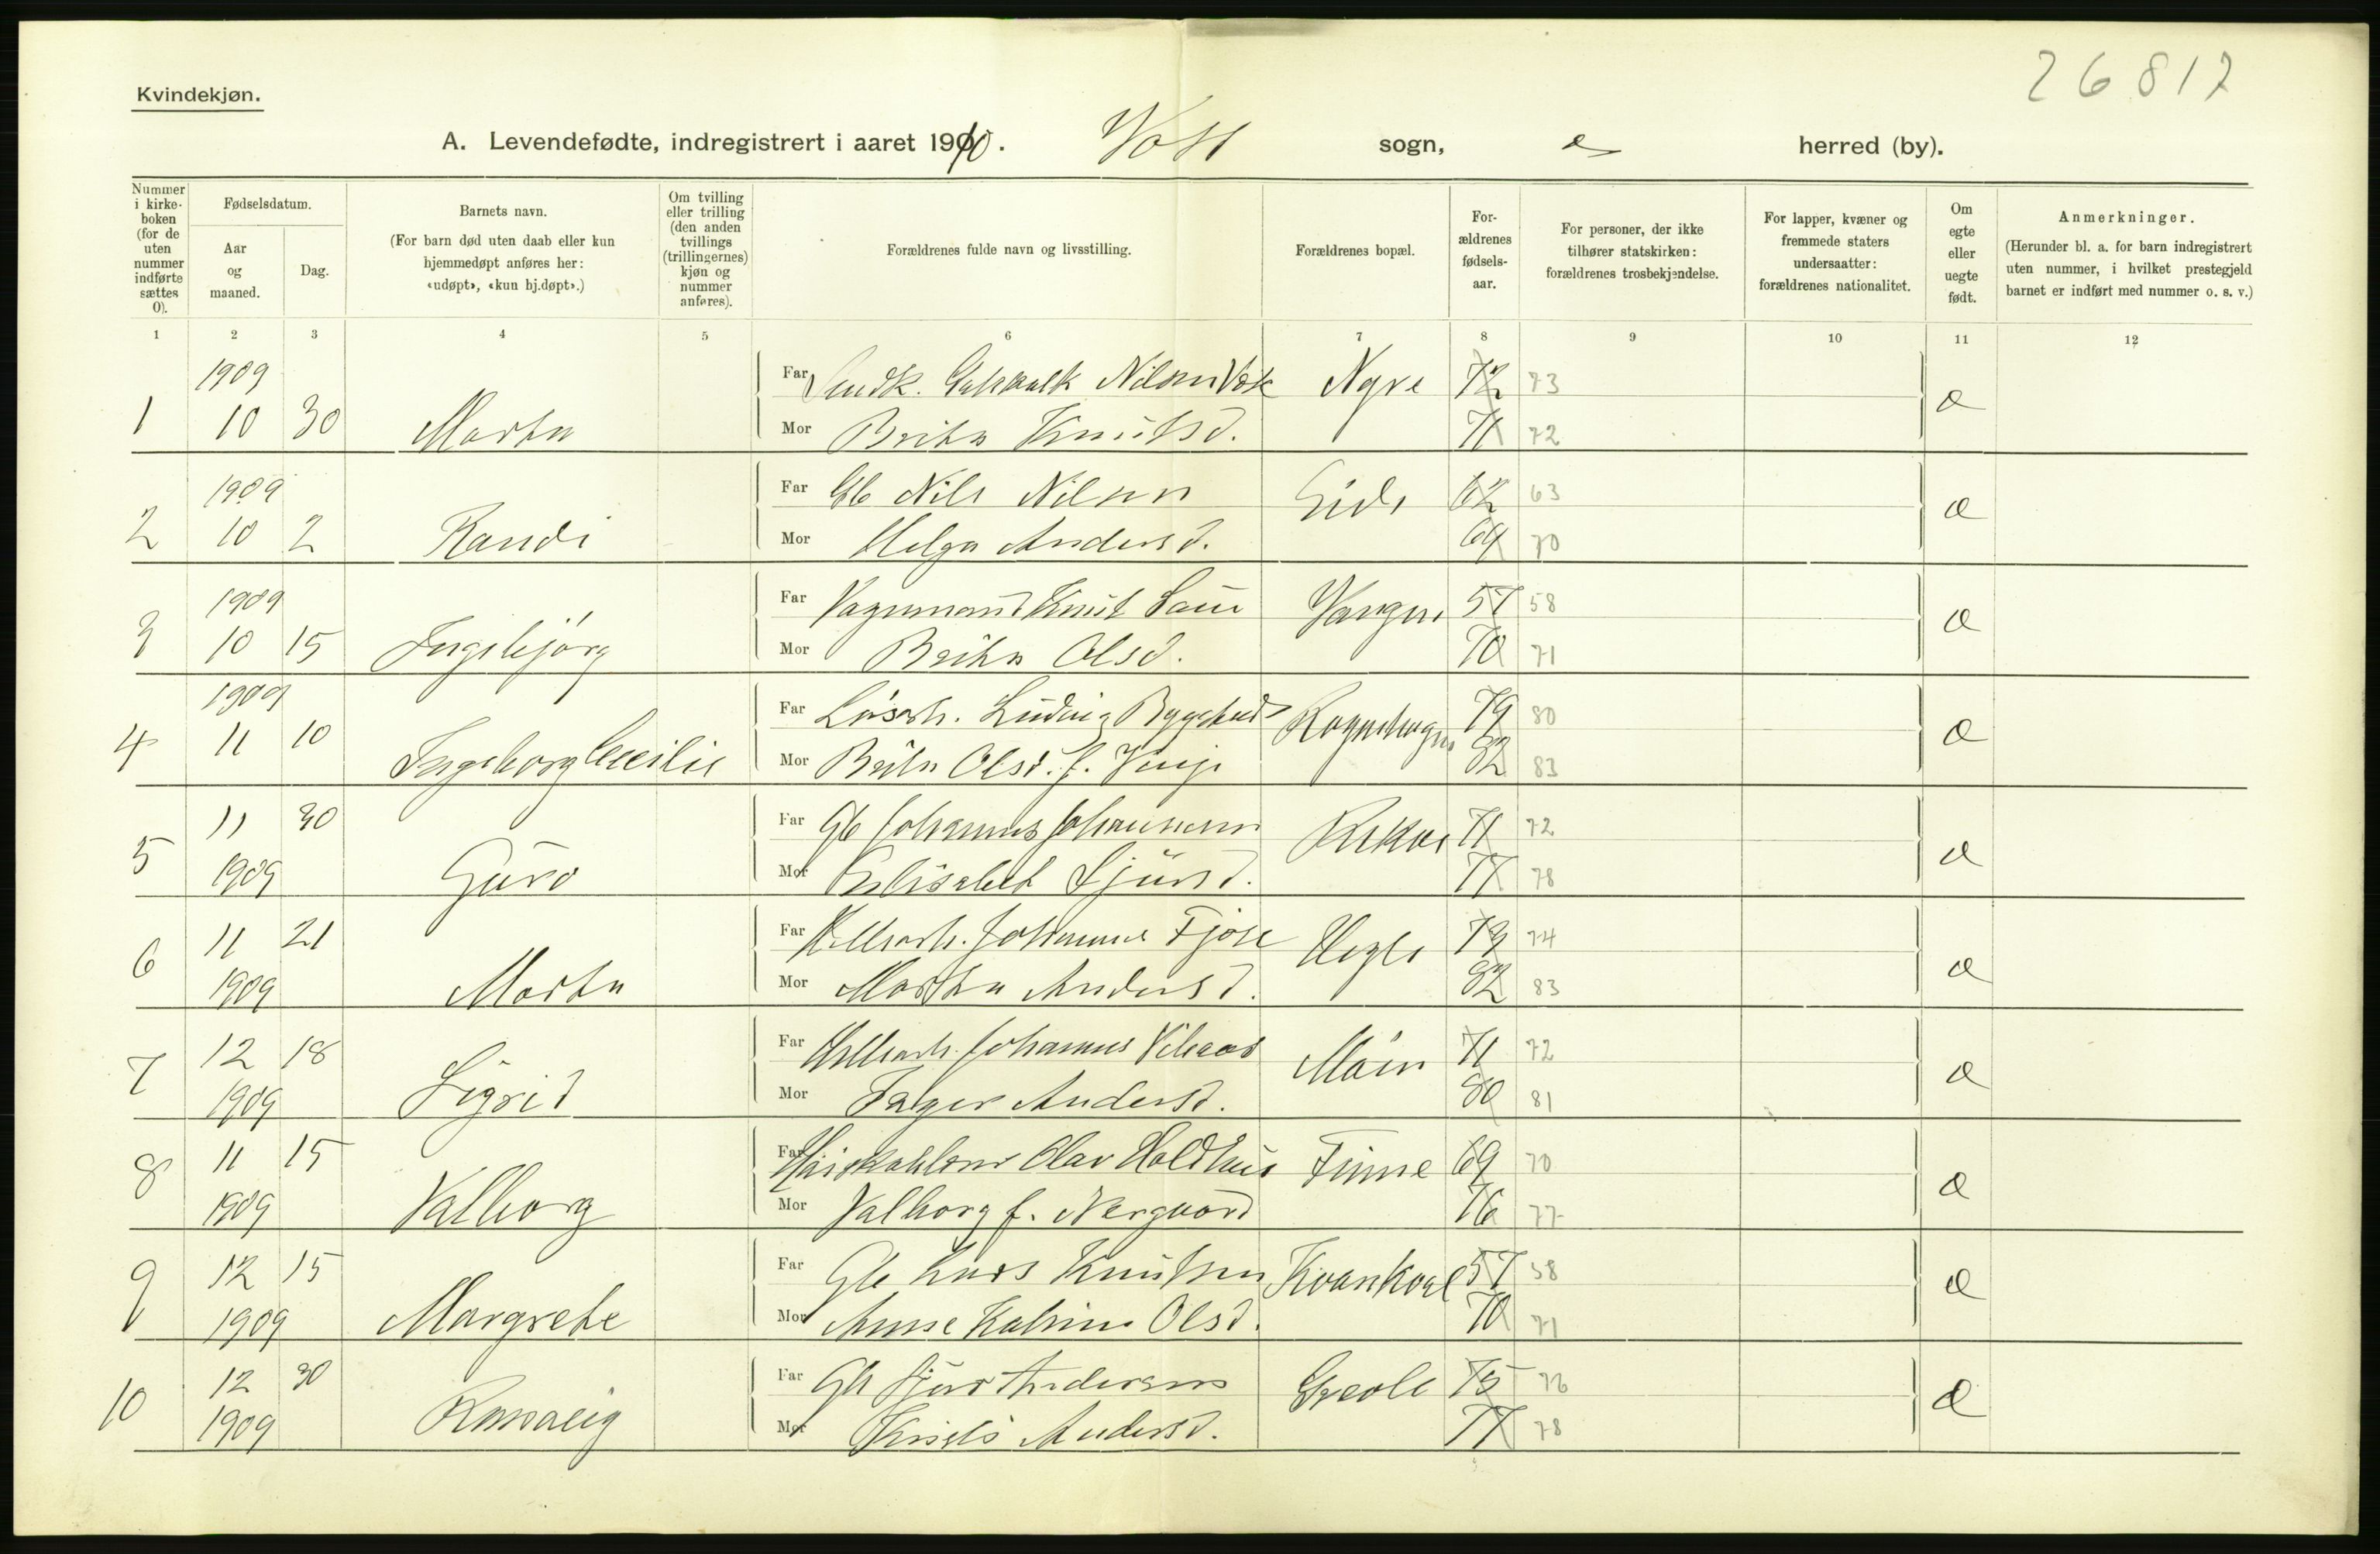 26817
Kvindekjøn.
A. Levendefødte, indregistrert i aaret 1910. Voss sogn, herred (by).
Nummer i kirke-boken (for de uten nummer indførte sættes 0).
Fødselsdatum.
Aar og maaned.
Dag.
Barnets navn.
(For barn død uten daab eller kun hjemmedøpt anføres her: «udøpt», «kun hj.døpt».)
Om tvilling eller trilling (den anden tvillings (trillingernes) kjøn og nummer anføres).
Forældrenes fulde navn og livsstilling.
Forældrenes bopæl.
For-ældrenes fødsels-aar.
For personer, der ikke tilhører statskirken: forældrenes trosbekjendelse.
For lapper, kvæner og fremmede staters undersaatter: forældrenes nationalitet.
Om egte eller uegte født.
Anmerkninger.
(Herunder bl. a. for barn indregistrert uten nummer, i hvilket prestegjeld barnet er indført med nummer o. s. v.)
1 2 3 4 5 6 7 8 9 10 11 12
1909
Far Nilsen Nyre 72 73
1 10 30 Martha æ
Mor Brita Knutsd. 71 72
1909
Far Gb Nils Nilsen Eide 62 63
2 10 2 Randi æ
Mor Helga Andersd. 69 70
1909
Far Vognmand Knut Vangen 57 58
3 10 15 Ingebjørg æ
Mor Brita Olsd. 70 71
1909
Far Løsarb. Ludvig 79 80
4 11 10 Ingeborg Cecilie æ
Mor Brita Olsd. f. Vinje 82 83
11 30 Far Gb Johannes Johannesen Rekve 71 72
5 Guro æ
1909 Mor Elisabet Sjursd. 77 78
11 21 Far Johannes Fjose 73 74
6 Martha æ
1909 Mor Martha Andersd. 82 83
12 18 Far Johannes Møen 71 72
7 Sigrid æ
1909 Mor Andersd. 80 81
11 15 Far Olav Holdhus Finne 69 70
8 Valborg æ
1909 Mor Valborg f. Nergaard 76 77
12 15 Far Gb Lars Knutsen 57 58
9 Margrete æ
1909 Mor Anne Katrine Olsd. 70 71
12 30 Far Gb Sjur Andersen 75 76
10 æ
1909 Mor Andersd. 77 78